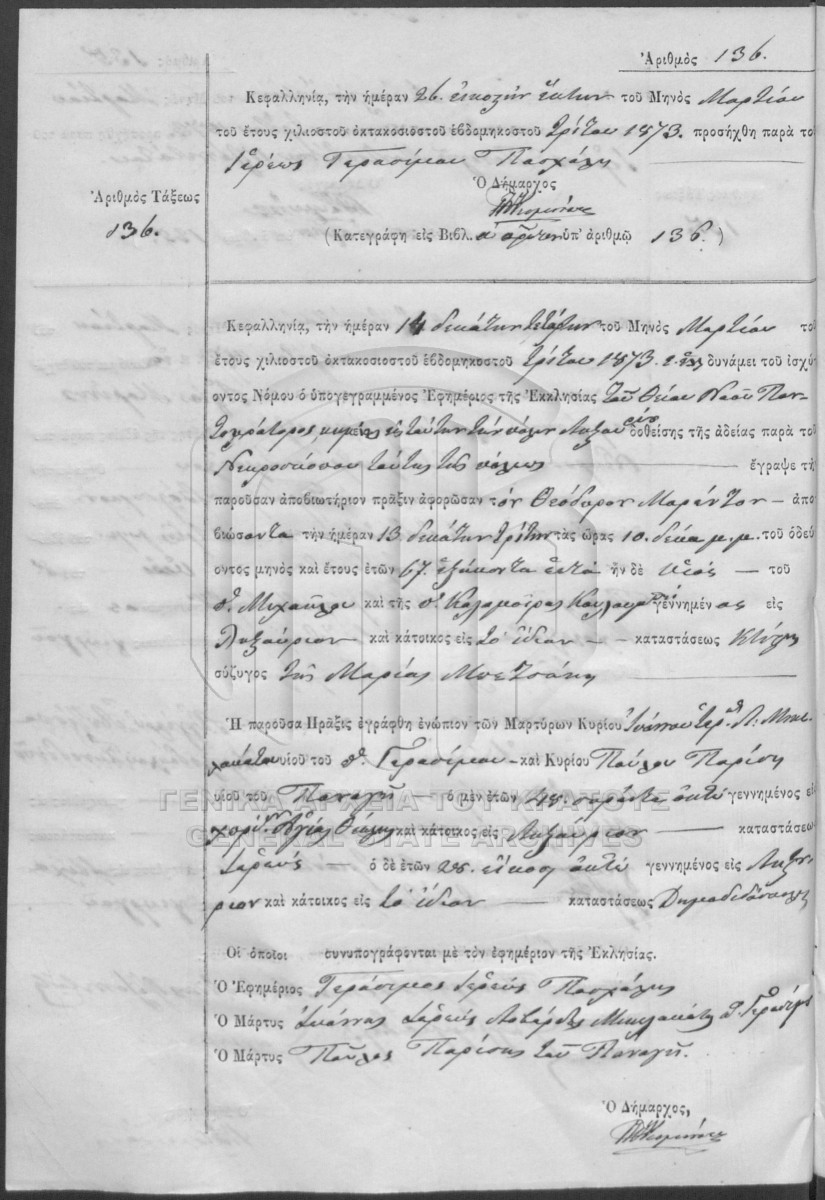 Ἀριθμὸς 136.
Κεφαλληνίᾳ, τὴν ἡμέραν 26. εἰκοστὴν ἕκτην τοῦ Μηνὸς Μαρτίου
τοῦ ἔτους χιλιοστοῦ ὀκτακοσιοστοῦ ἑβδομηκοστοῦ τρίτου 1873. προσήχθη παρὰ το
Ἱερέως Γερασίμου Πασχάλη
Ὁ Δήμαρχος
Ἀριθμὸς Τάξεως
136.
(Κατεγράφη εἰς Βιβλ. αʹ πρῶτον ὑπ' ἀριθμῷ 136.)
Κεφαλληνίᾳ, τὴν ἡμέραν 14 δεκάτην τετάρτην τοῦ Μηνὸς Μαρτίου το
ἔτους χιλιοστοῦ ὀκτακοσιοστοῦ ἑβδομηκοστοῦ τρίτου 1873. δυνάμει τοῦ ἰσχύ
οντος Νόμου ὁ ὑπογεγραμμένος Ἐφημέριος τῆς Ἐκκλησίας τοῦ Θείου Ναοῦ Παν-
τοκράτορος, κειμένης εἰς ταύτην τὴν πόλιν Ληξουρίου δοθείσης τῆς ἀδείας παρὰ τοῦ
Νεκροσκόπου ταύτης τῆς πόλεως ἔγραψε τὴ
παροῦσαν ἀποβιωτήριον πρᾶξιν ἀφορῶσαν τὸν Θεόδωρον Μαρέντον - ἀπο
βιώσαντα τὴν ἡμέραν 13 δεκάτην τρίτην τὰς ὥρας 10. δέκα μ.μ. τοῦ ὁδεύ
οντος μηνὸς καὶ ἔτους ἐτῶν 67. ἑξήκοντα ἑπτὰ ἦν δὲ υἱὸς τοῦ
Μιχαήλου καὶ τῆς γεννημένος εἰς
Ληξούριον καὶ κάτοικος εἰς τὸ ἴδιον καταστάσεως
σύζυγος τῆς Μαρίας Μπετσάκη
Ἡ παροῦσα Πρᾶξις ἐγράφθη ἐνώπιον τῶν Μαρτύρων Κυρίου Ἰωάννου
υἱοῦ τοῦ Γερασίμου - καὶ Κυρίου Παύλου Παρίση
υἱοῦ τοῦ Παναγῆ ὁ μὲν ἐτῶν 48. σαράντα ὀκτὼ γεννημένος εἰ
χωρίον Ἁγίας Θέκλης καὶ κάτοικος εἰς Ληξούριον καταστάσεω
Ἱερεὺς ὁ δὲ ἐτῶν 28. εἴκοσι ὀκτὼ γεννημένος εἰς Ληξού-
ριον καὶ κάτοικος εἰς τὸ ἴδιον καταστάσεως Δημοδιδάσκαλος
Οἱ ὁποῖοι συνυπογράφονται μὲ τὸν ἐφημέριον τῆς Ἐκλησίας.
Ὁ Ἐφημέριος Γεράσιμος Ἱερεὺς Πασχάλης
Ὁ Μάρτυς Ἰωάννης Ἱερεὺς
Ὁ Μάρτυς Παῦλος Παρίσης τοῦ Παναγῆ.
Ὁ Δήμαρχος,
ΓΕΝΙΚΑ ΑΡΧΕΙΑ ΤΟΥ ΚΡΑΤΟΥΣ
GENERAL STATE ARCHIVES